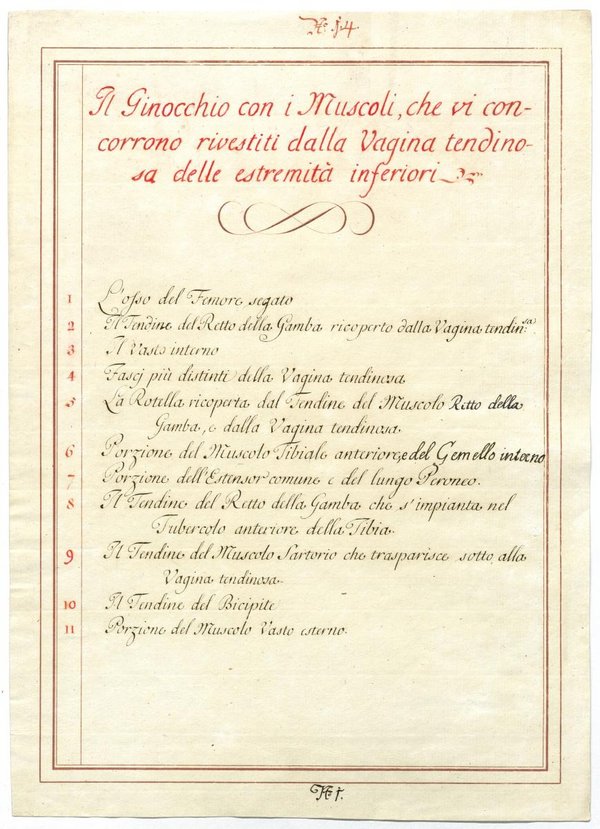 N.º 14
Il Ginocchio con i Muscoli, che vi con-
corrono rivestiti dalla Vagina tendino-
sa delle estremità inferiori
1 L'osso del Femore segato
2 Il Tendine del Retto della Gamba ricoperto dalla Vagina tendin.sa
3 Il Vasto interno
4 Fascj più distinti della Vagina tendinosa
5 La Rotella ricoperta dal Tendine del Muscolo Retto della
Gamba, e dalla Vagina tendinosa
6 Porzione del Muscolo Tibiale anteriore, e del Gemello interno
7 Porzione dell'Estensor comune e del lungo Peroneo.
8 Il Tendine del Retto della Gamba che s'impianta nel
Tubercolo anteriore della Tibia.
9 Il Tendine del Muscolo Sartorio che trasparisce sotto alla
Vagina tendinosa.
10 Il Tendine del Bicipite
11 Porzione del Muscolo Vasto esterno.